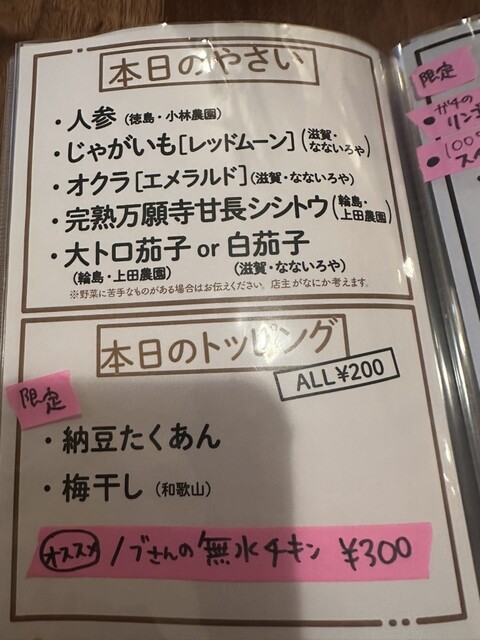 本日のやさい
・人参（徳島・小林農園）
・じゃがいも[レッドムーン]（滋賀・なないろや）
・オクラ[エメラルド]（滋賀・なないろや）
・完熟万願寺甘長シシトウ（輪島・上田農園）
・大トロ茄子 or 白茄子
（輪島・上田農園）（滋賀・なないろや）
※野菜に苦手なものがある場合はお伝えください。店主がなにか考えます。
本日のトッピング
ALL ¥200
限定
・納豆たくあん
・梅干し（和歌山）
オススメ ノブさんの無水チキン ¥300
限定
ガチの
リン
100%